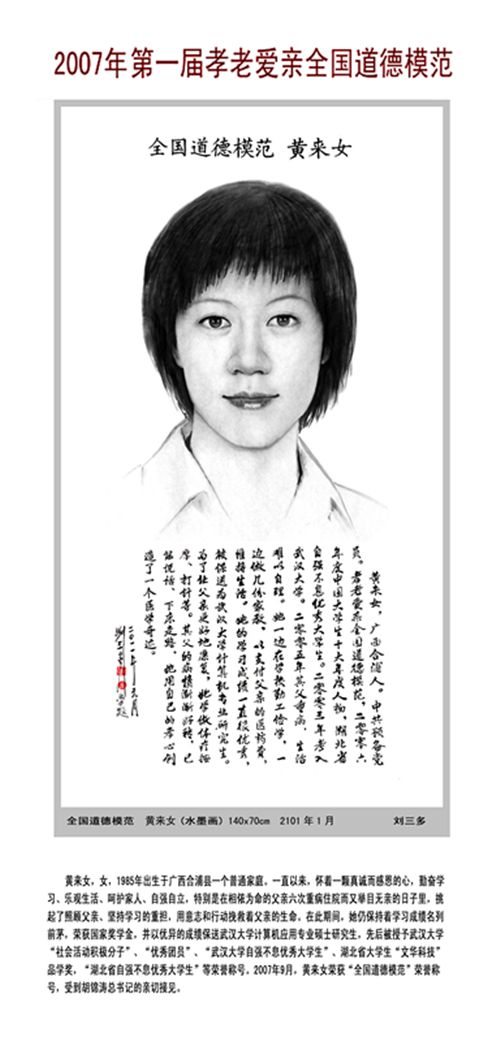 2007年第一届孝老爱亲全国道德模范
全国道德模范 黄来女
黄来女，广西合浦人。中共预备党
员。孝老爱亲全国道德模范，二零零六
年度中国大学生十大年度人物，湖北省
自强不息优秀大学生。二零零三年考入
武汉大学。二零零五年其父重病，生活
难以自理。她一边在学校勤工俭学，一
边做几份家教，以支付父亲的医药费，
维持生活。她的学习成绩一直很优秀，
被保送为武汉大学计算机专业研究生。
为了让父亲更好地康复，她学做体疗按
摩、打针等。其父的病情渐渐好转，已
能说话、下床走路，她用自己的孝心创
造了一个医学奇迹。
二零一一年元月
全国道德模范 黄来女（水墨画）140x70cm 2101年1月 刘三多
黄来女，女，1985年出生于广西合浦县一个普通家庭。一直以来，怀着一颗真诚而感恩的心，勤奋学
习、乐观生活、呵护家人、自强自立，特别是在相依为命的父亲六次重病住院而又举目无亲的日子里，挑
起了照顾父亲、坚持学习的重担，用意志和行动挽救着父亲的生命。在此期间，她仍保持着学习成绩名列
前茅，荣获国家奖学金，并以优异的成绩保送武汉大学计算机应用专业硕士研究生，先后被授予武汉大学
“社会活动积极分子”、“优秀团员”、“武汉大学自强不息优秀大学生”、湖北省大学生“文华科技”
品学奖，“湖北省自强不息优秀大学生”等荣誉称号。2007年9月，黄来女荣获“全国道德模范”荣誉称
号，受到胡锦涛总书记的亲切接见。